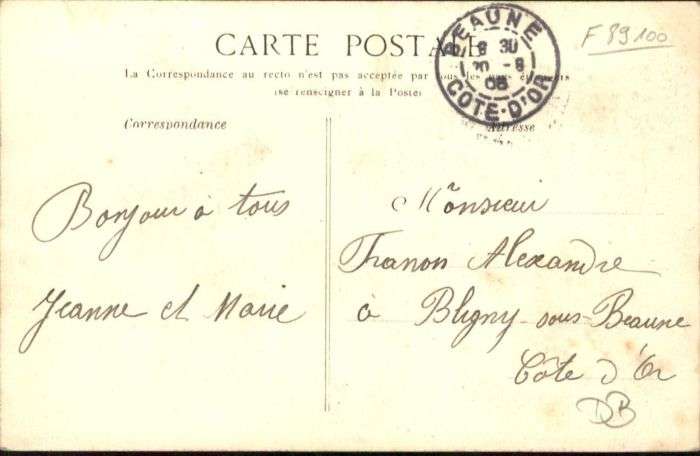 CARTE POSTALE
La Correspondance au recto n'est pas acceptée par tous les pays étrangers
(se renseigner à la Poste)
BEAUNE
8 30
20 - 8
CÔTE-D'OR
F 89100
Correspondance
Bonjour à tous
Jeanne et Marie
Adresse
Monsieur
Franon Alexandre
à Bligny-sous-Beaune
Côte d'Or
DB